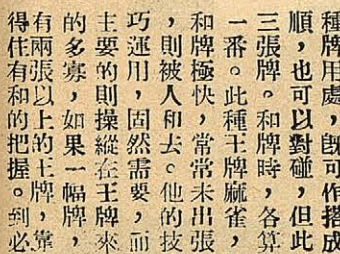 種牌用處，旣可作搭成
順，也可以對碰，但此
三張牌。和牌時，各算
一番。此種王牌麻雀，
和牌極快，常常未出張
，則被人和去。他的技
巧運用，固然需要，而
主要的則操縱在王牌來
的多寡，如果一幅牌，
有兩張以上的王牌，靠
得住有和的把握。到必